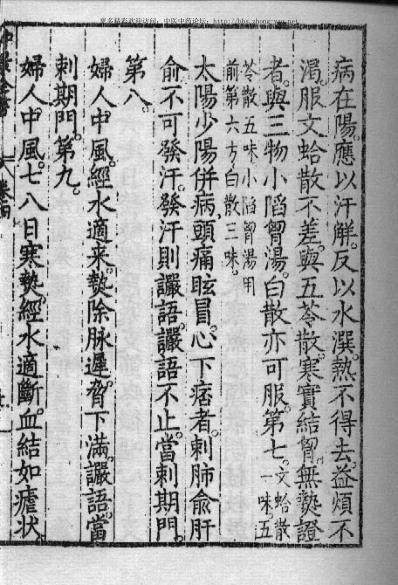 更多精彩欢迎访问:中医中药论坛: http://bbs.zhong-yao.net
病在陽。應以汗解。反以水潠。熱不得去。益煩不
渴。服文蛤散不差。與五苓散。寒實結胷。無熱證
者。與三物小陷胷湯。白散亦可服。第七。文蛤散一味。五
苓散五味。小陷胷湯用
前第六方。白散三味。
太陽少陽併病。頭痛眩冒。心下痞者。刺肺俞肝
俞。不可發汗。發汗則讝語。讝語不止。當刺期門。
第八。
婦人中風。經水適来。熱除脉遲。脅下滿。讝語。當
刺期門。第九。
婦人中風。七八日寒熱。經水適斷。血結如瘧狀。